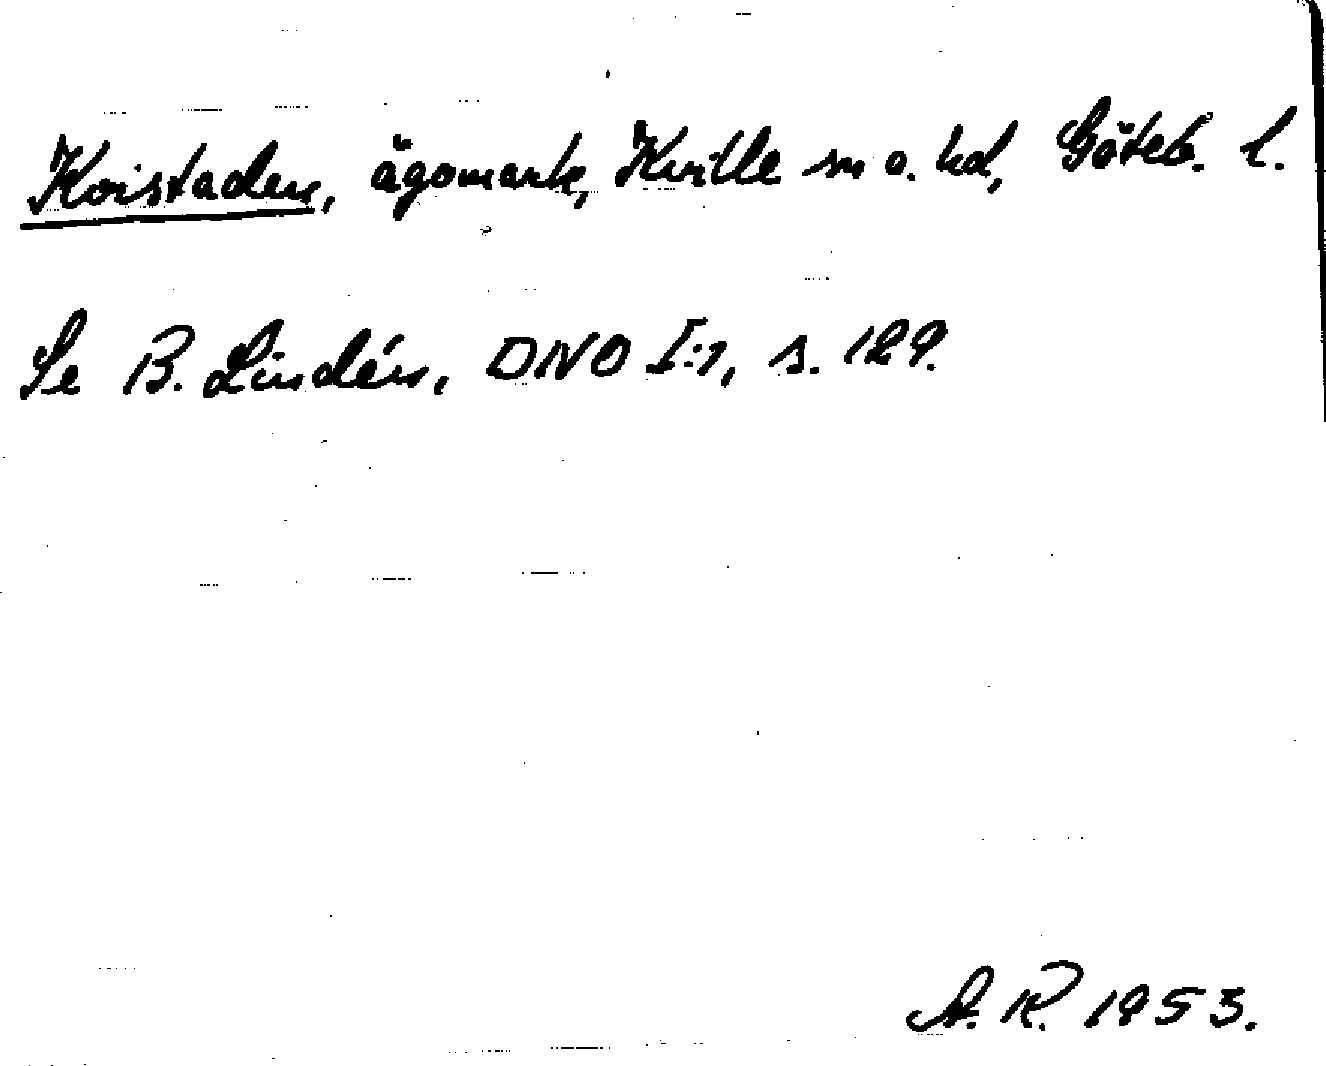 Koistaden, ägomark, Kville sn o. hd, Göteb. l.
Se B. Lindén, DNO I:1, s. 129.
A. R. 1953.